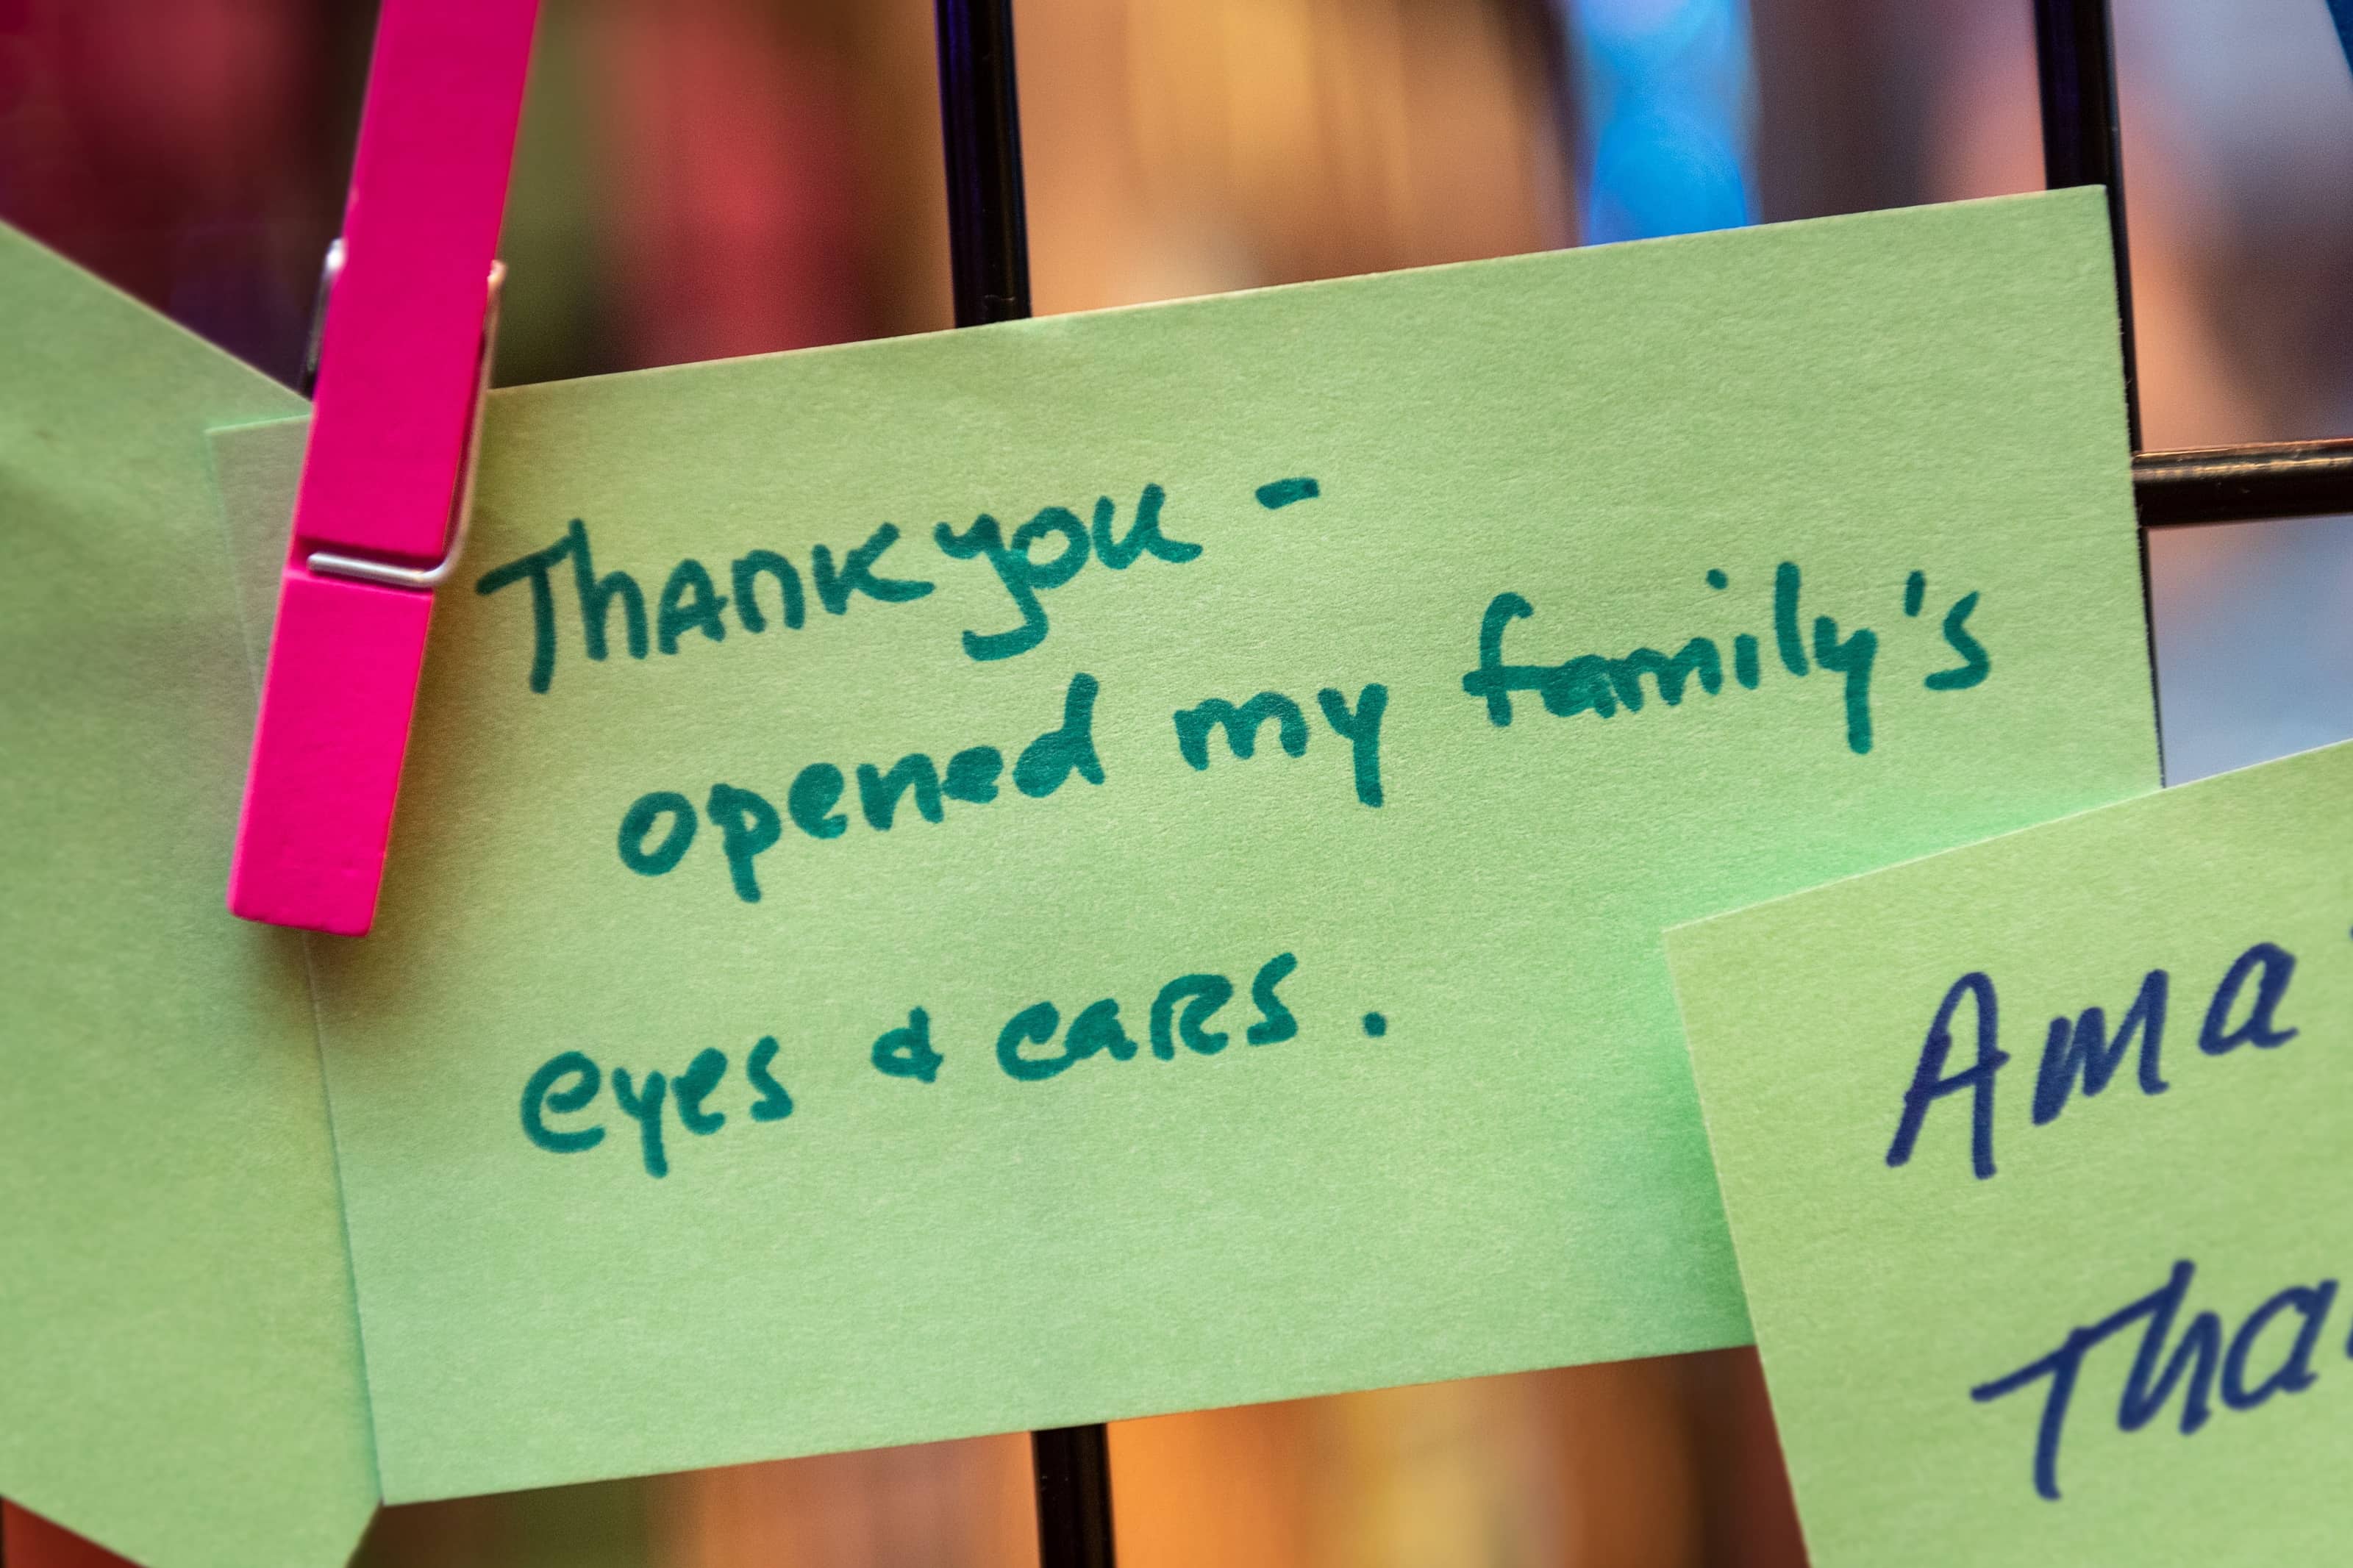 Thank you -
opened my family's
eyes & ears.
Ama
Tha